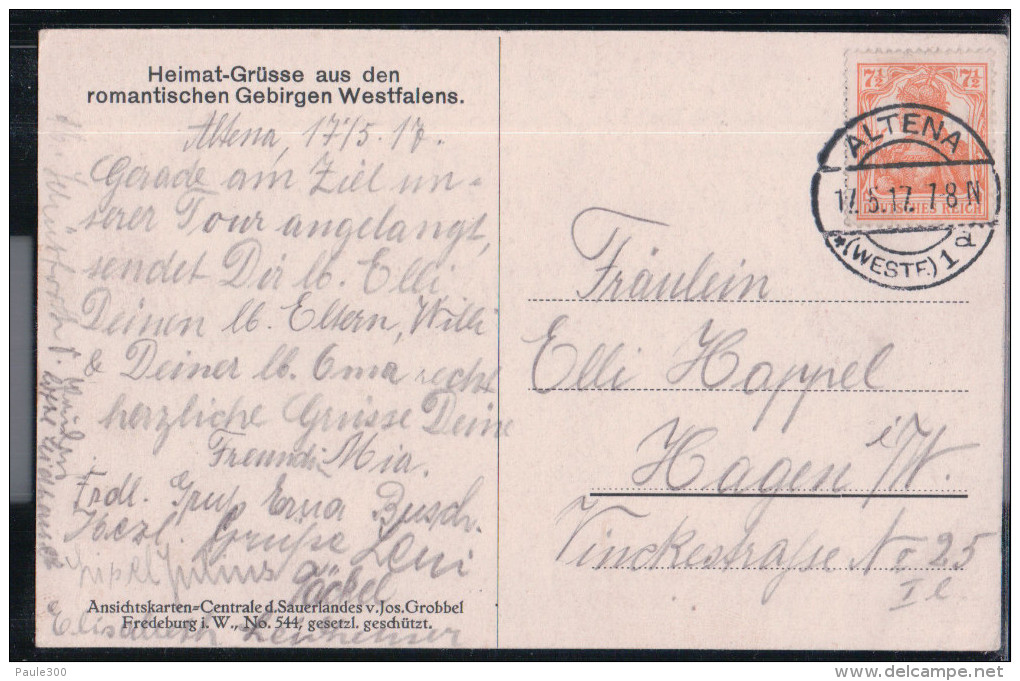 Heimat-Grüsse aus den
romantischen Gebirgen Westfalens.
Altena, 17/5.17.
Gerade am Ziel un-
serer Tour angelangt,
sendet Dir lb. Elli
Deinen lb. Eltern, Willi
& Deiner lb. Oma recht
herzliche Grüsse Deine
Freundin Mia.
Frdl. Gruß Erna Busch.
Herzl. Grüße Leni
Jäckel
Elisabeth
Ansichtskarten-Centrale d. Sauerlandes v. Jos. Grobbel
Fredeburg i. W., No. 544, gesetzl. geschützt.
7½ 7½
DEUTSCHES REICH
ALTENA
17.5.17. 7-8 N
*(WESTF.) 1 a
Fräulein
Elli Hoppel
Hagen i/W.
Vinckestraße No 25
I e.
Paule300
www.delcampe.net